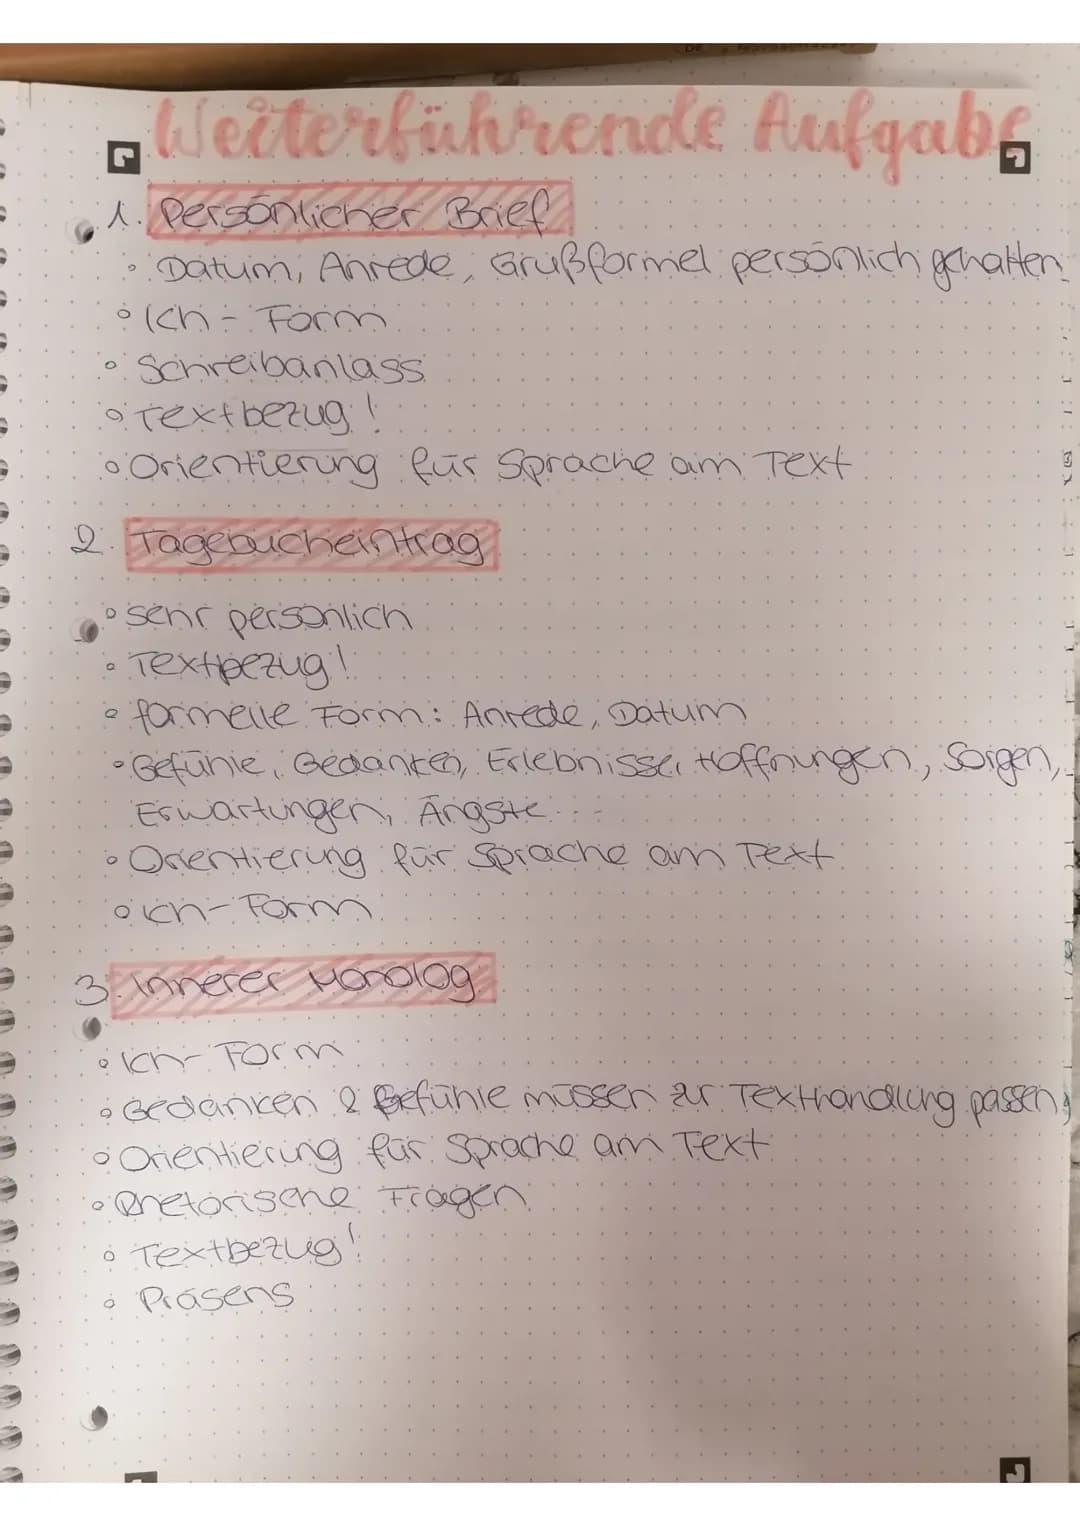 Weiterführende Aufgabe
1. Persönlicher Brief
• Datum, Anrede, Grußformel persönlich gehalten
• Ich-Form
• Schreibanlass
• Textbezug!
• Orientierung für Sprache am Text
2. Tagebucheintrag
• sehr persönlich
• Textbezug!
• formelle Form: Anrede, Datum
• Gefühle, Gedanken, Erlebnisse, Hoffnungen, Sorgen,
Erwartungen, Ängste...
• Orientierung für Sprache am Text
• Ich-Form
3. Innerer Monolog
• Ich-Form
• Gedanken & Gefühle müssen zur Texthandlung passen
• Orientierung für Sprache am Text
• Rhetorische Fragen
• Textbezug!
• Präsens